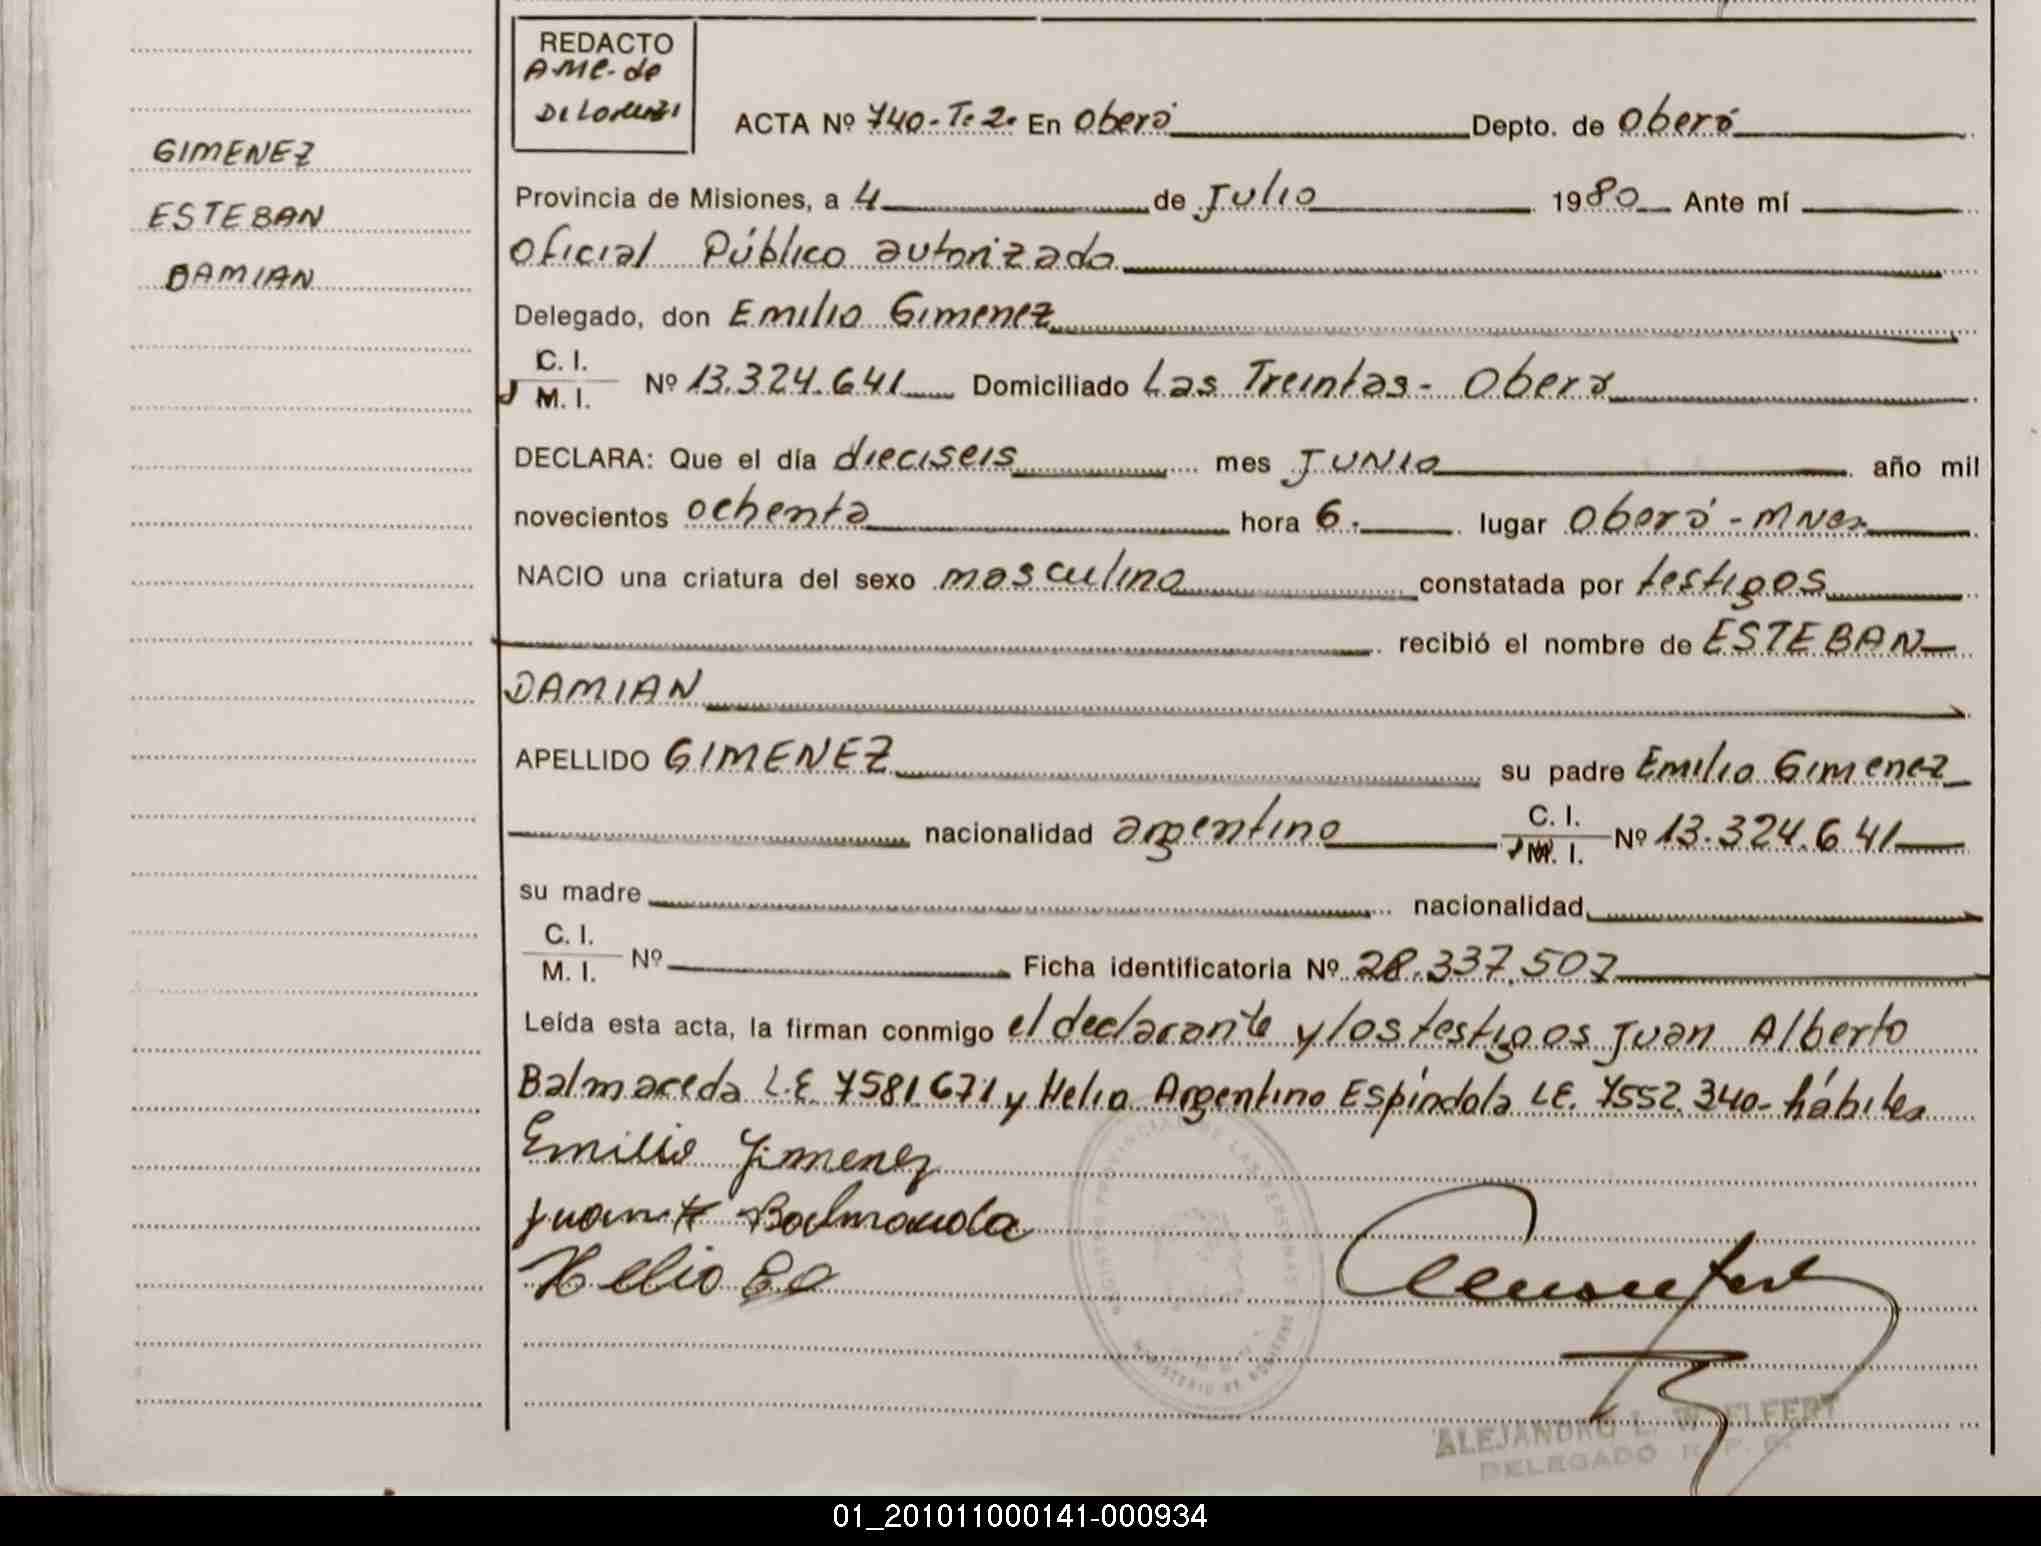 REDACTO
A.M.C. de
Di Lorenzi
ACTA Nº 740-T. 2. En Oberá Depto. de Oberá
GIMENEZ
ESTEBAN
DAMIAN
Provincia de Misiones, a 4 de Julio 1980 Ante mí
Oficial Público autorizado
Delegado, don Emilio Gimenez
C. I.
M. I. Nº 13.324.641 Domiciliado Las Treintas - Oberá
DECLARA: Que el día dieciseis mes JUNIO año mil
novecientos ochenta hora 6. lugar Oberá - Mnes
NACIO una criatura del sexo masculino constatada por testigos
recibió el nombre de ESTEBAN
DAMIAN
APELLIDO GIMENEZ su padre Emilio Gimenez
nacionalidad argentino C. I. M. I. Nº 13.324.641
su madre nacionalidad
C. I.
M. I. Nº Ficha identificatoria Nº 28.337.507
Leída esta acta, la firman conmigo el declarante y los testigos Juan Alberto
Balmaceda L.E. 7581.671 y Helio Argentino Espíndola LE. 7552.340- hábiles
Emilio Jimenez
Juan A Balmaceda
Helio
ALEJANDRO L. WELFERT
DELEGADO R. P. P.
01_201011000141-000934